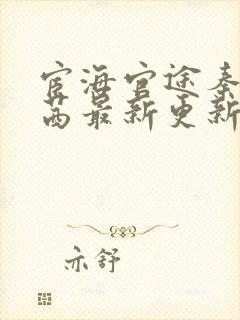 宦海官途秦
茜最新更新
亦舒